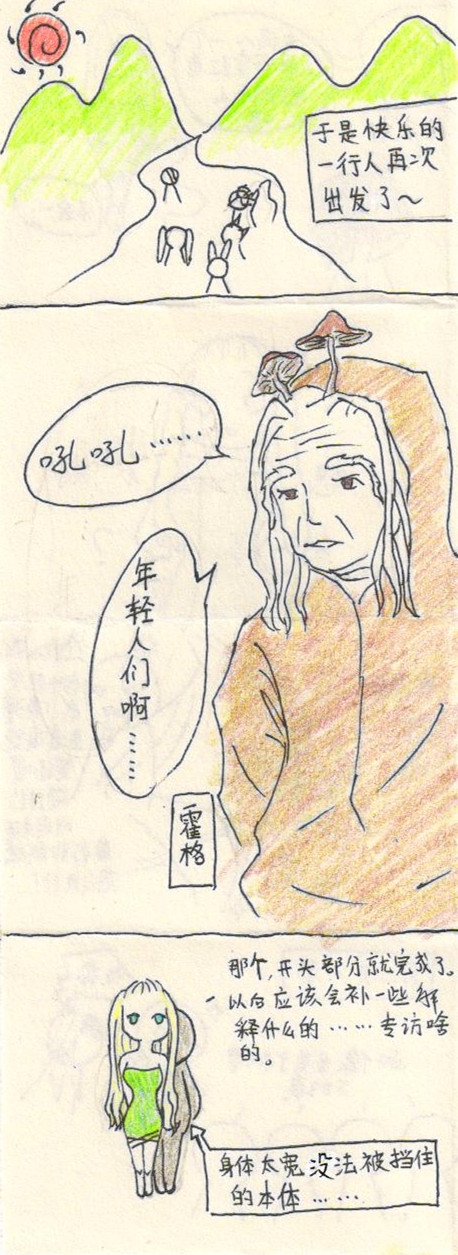 于是快乐的
一行人再次
出发了～
吼吼……
年轻人们啊……
霍格
那个，开头部分就完成了。
以后应该会补一些解
释什么的……专访啥
的。
身体太宽没法被挡住
的本体……